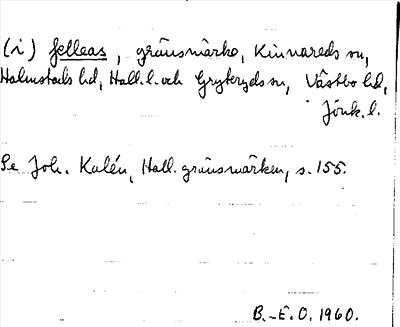 (i) felleas, gränsmärke, Kinnareds sn,
Halmstads hd, Hall. l. och Gryteryds sn, Västbo hd,
Jönk. l.
Se Joh. Kalén, Hall. gränsmärken, s. 155.
B.-E.O. 1960.